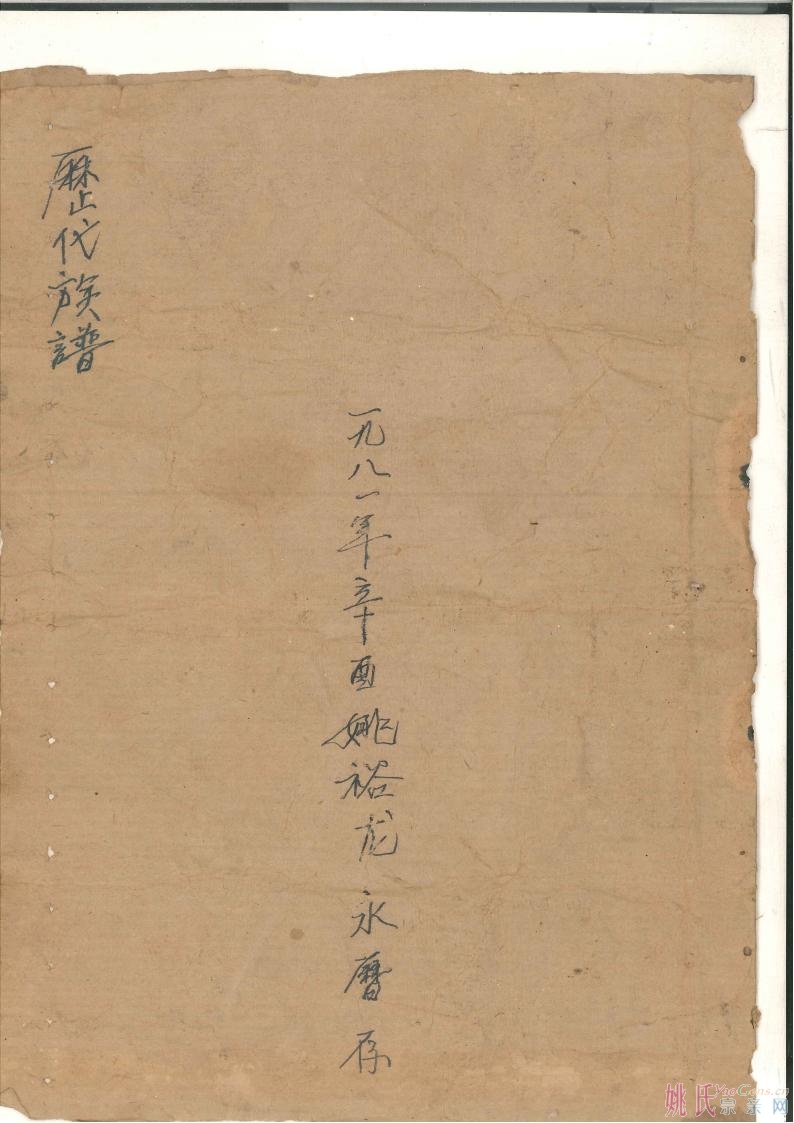 歷代族譜
一九八一年辛酉姚裕龙永曆存
姚氏宗亲网
YaoGens.cn